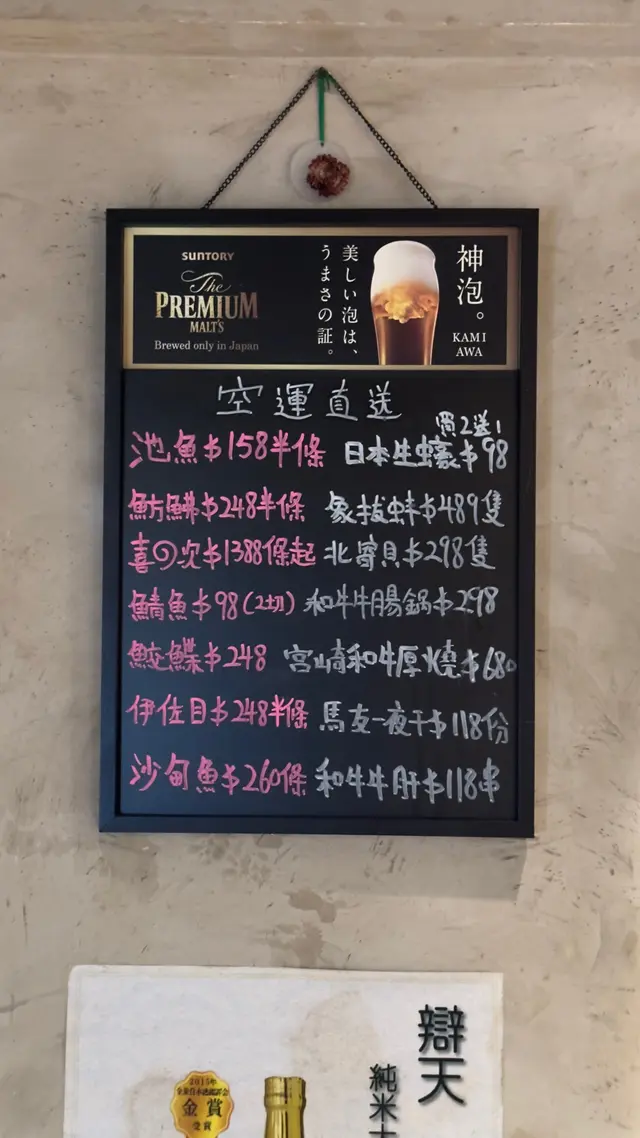 SUNTORY
The
PREMIUM
MALT'S
Brewed only in Japan
美しい泡は、
うまさの証。
神泡。
KAMI
AWA
空運直送
池魚$158半條
買2送1
日本生蠔$98
魴鮄$248半條
象拔蚌$489隻
喜の次$1388條起
北寄貝$298隻
鯖魚$98(2切)
和牛牛腸鍋$298
鮫鰈$248
宮崎和牛厚燒$680
伊佐目$248半條
馬友一夜干$118份
沙甸魚$260條
和牛牛肝$118串
辯天
純米大
2015年
金賞
受賞